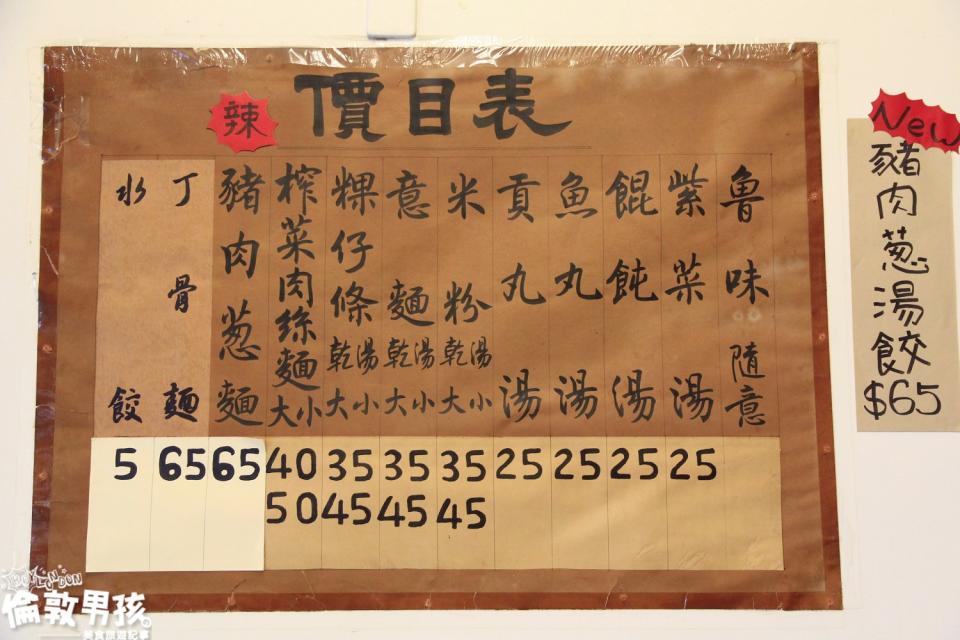 價目表
辣
魯味 隨意
紫菜湯 25
餛飩湯 25
魚丸湯 25
貢丸湯 25
米粉 乾湯 大小 35 45
意麵 乾湯 大小 35 45
粿仔條 乾湯 大小 35 45
榨菜肉絲麵 大小 40 50
豬肉葱麵 65
丁骨麵 65
水餃 5
New
豬肉葱湯餃
$65
倫敦男孩
美食旅遊紀事